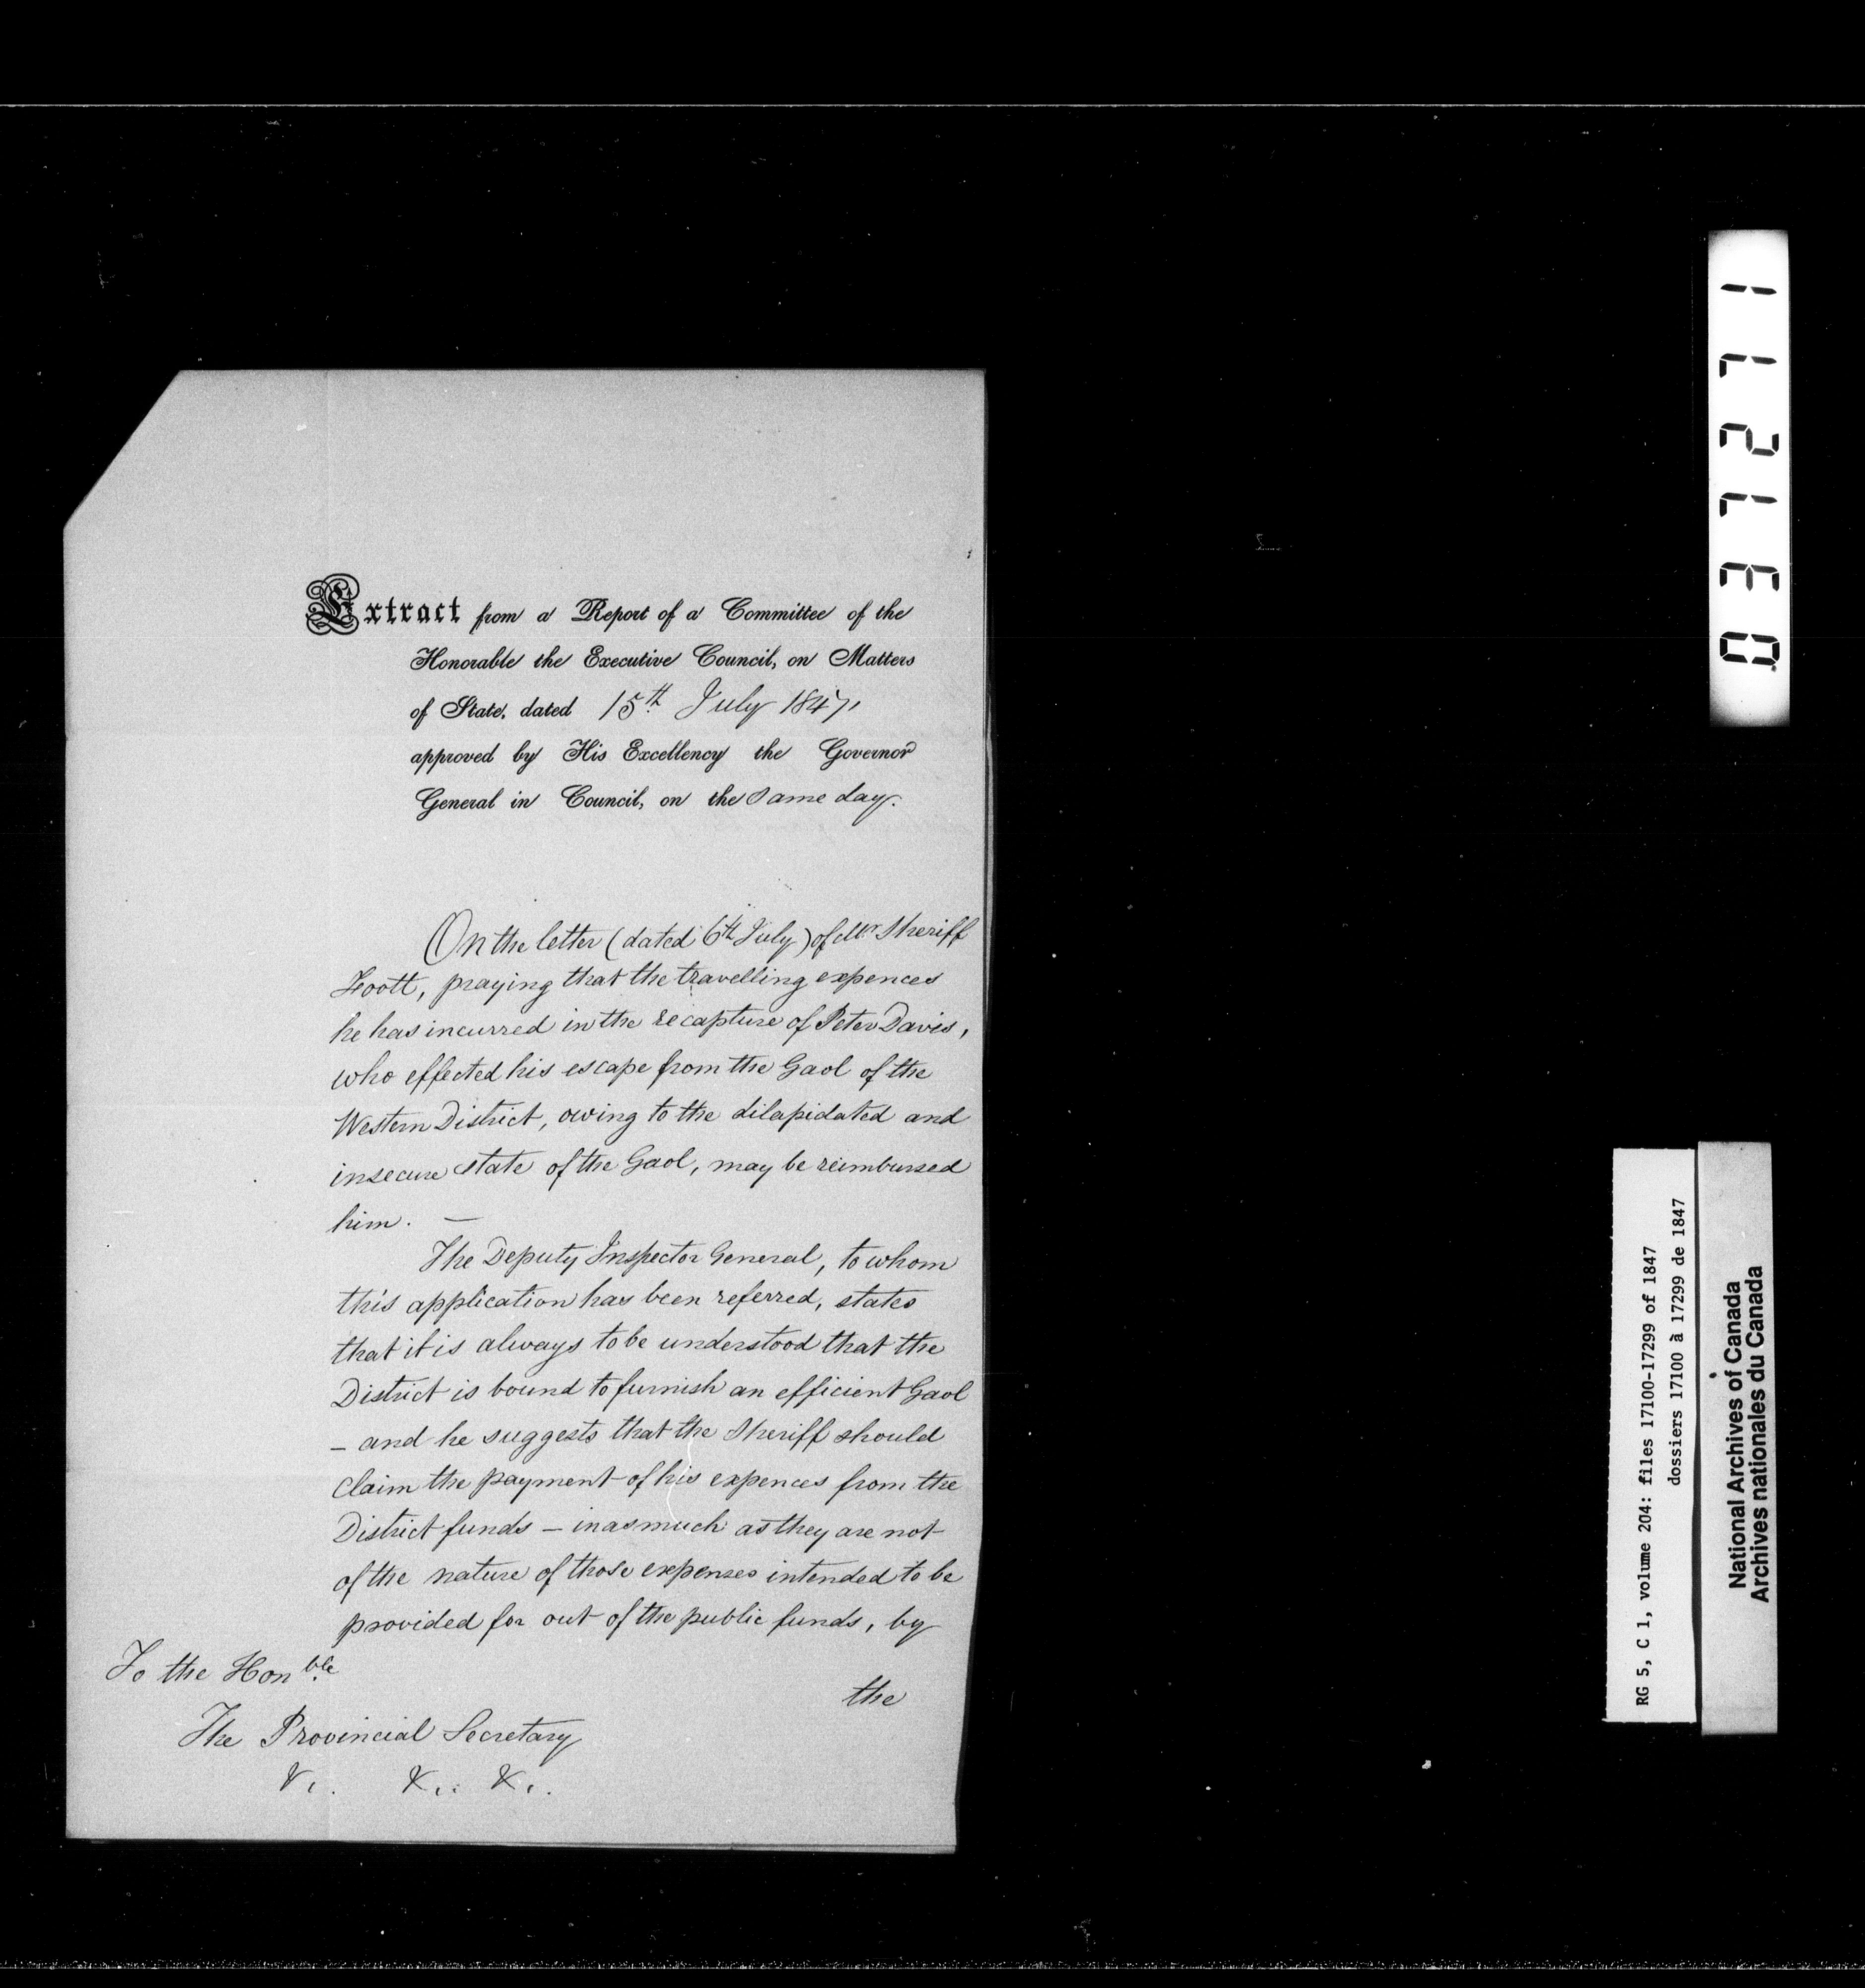 Extract from a Report of a Committee of the
Honorable the Executive Council, on Matters
of State, dated 15th July 1847,
approved by His Excellency the Governor
General in Council, on the same day.
On the letter (dated 6th July) of Mr Sheriff
Foott, praying that the travelling expences
he has incurred in the recapture of Peter Davis,
who effected his escape from the Gaol of the
Western District, owing to the dilapidated and
insecure state of the Gaol, may be reimbursed
him. —
The Deputy Inspector General, to whom
this application has been referred, states
that it is always to be understood that the
District is bound to furnish an efficient Gaol
– and he suggests that the Sheriff should
claim the payment of his expences from the
District funds – inasmuch as they are not
of the nature of those expenses intended to be
provided for out of the public funds, by
the
To the Honble
The Provincial Secretary
&c. &c. &c.
037271
RG 5, C 1, volume 204: files 17100-17299 of 1847
dossiers 17100 à 17299 de 1847
National Archives of Canada
Archives nationales du Canada